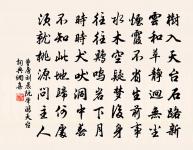 樹入天台石路新
雲和草靜迥無塵
煙霞不省生前事
水木空疑夢後身
往往鷄鳴岩下月
時時犬吠洞中春
不知此地歸何處
須就桃源問主人
曹唐劉晨阮肇遊天台